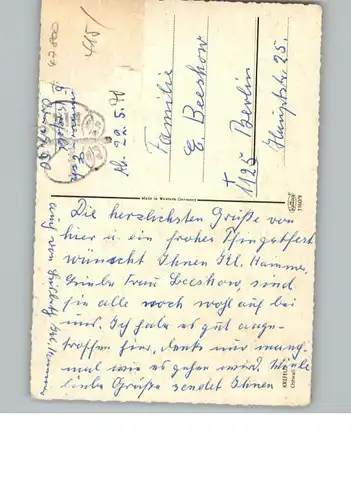 47800
415/
Ab. 29.5.71
Familie
E. Beeskow
1125 Berlin
Hauptstr 25.
Made in Western Germany
Die herzlichsten Grüße von
hier u. ein frohes Pfingstfest
wünscht Ihnen Frl. Hamme,
Liebe Frau Beeskow, sind
sie alle noch wohl auf bei
uns. Ich habe es gut ange-
troffen hier, denke nur manch
mal wie es gehen wird. Viele
liebe Grüße sendet Ihnen
auch von
KREFELD
Ostwall